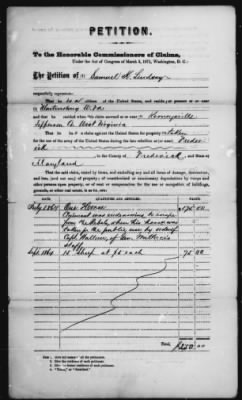 PETITION.
To the Honorable Commissioners of Claims,
Under the Act of Congress of March 3, 1871, Washington, D. C.
The Petition of Samuel H. Lindsey
respectfully represents:
That he is a citizen of the United States, and resides at present at or near
Martinsburg W. Va.
and that he resided when this claim accrued at or near Kerneysville
Jefferson Co West Virginia
That he has a claim against the United States for property taken
for the use of the army of the United States during the late rebellion at or near
in the County of Frederick, and State of
Maryland
That the said claim, stated by items, and excluding any and all items of damage, destruction,
and loss, (and not use) of property; of unauthorized or unnecessary depredations by troops and
other persons upon property, or of rent or compensation for the use or occupation of buildings,
grounds, or other real estate, is as follows:
DATE. QUANTITIES AND ARTICLES.
July 1864 One Horse 175 00
Claimant was endeavoring to escape
from the Rebels, when this horse was
taken for the public use by order of
Capt. of Gen
staff
Sept. 1864 15 Sheep at $5 each 75 00
Total, $250 00